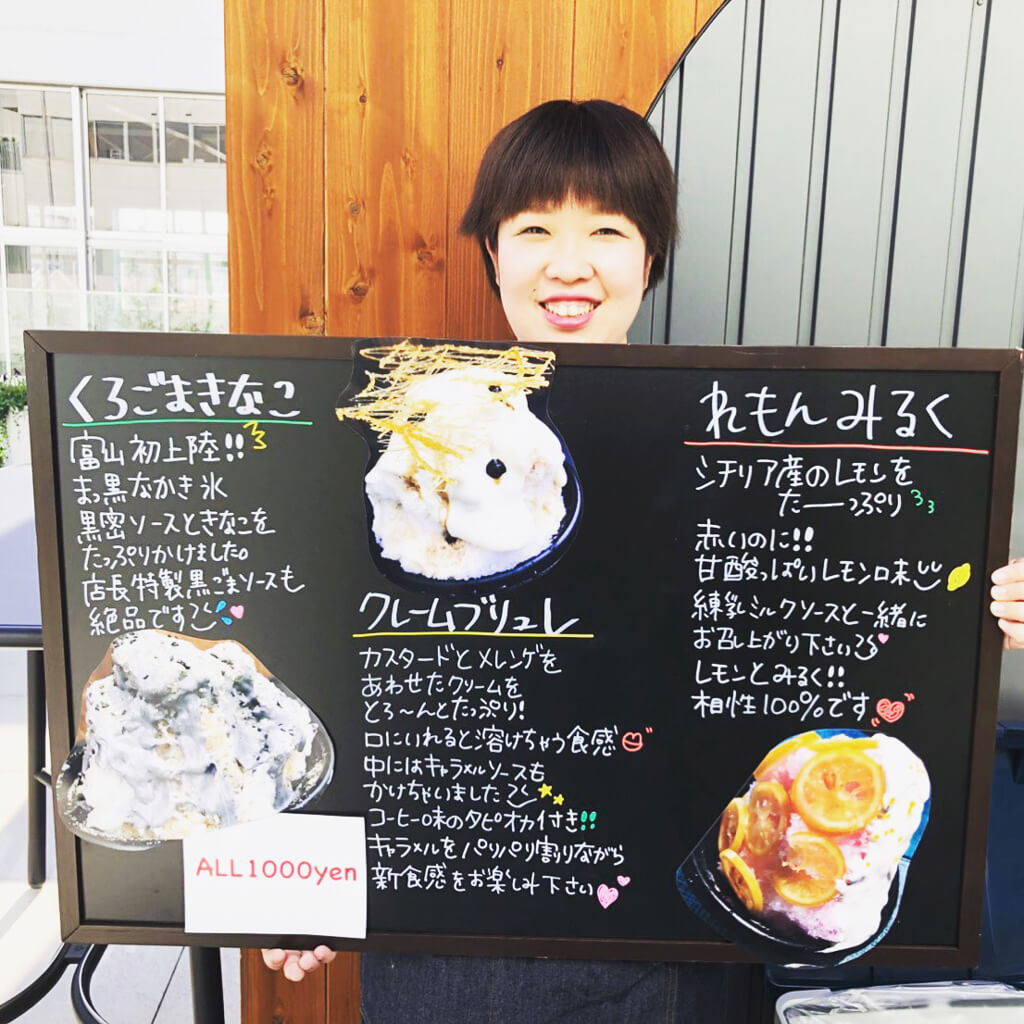 くろごまきなこ
富山初上陸!!
まっ黒なかき氷
黒密ソースときなこを
たっぷりかけました。
店長特製黒ごまソースも
絶品です
クレームブリュレ
カスタードとメレンゲを
あわせたクリームを
とろ〜んとたっぷり!
口にいれると溶けちゃう食感
中にはキャラメルソースも
かけちゃいました
コーヒー味のタピオカ付き!!
キャラメルをパリパリ割りながら
新食感をお楽しみ下さい
れもんみるく
シチリア産のレモンを
たーっぷり
赤いのに!!
甘酸っぱいレモン味
練乳ミルクソースと一緒に
お召し上がり下さい
レモンとみるく!!
相性100%です
ALL1000yen